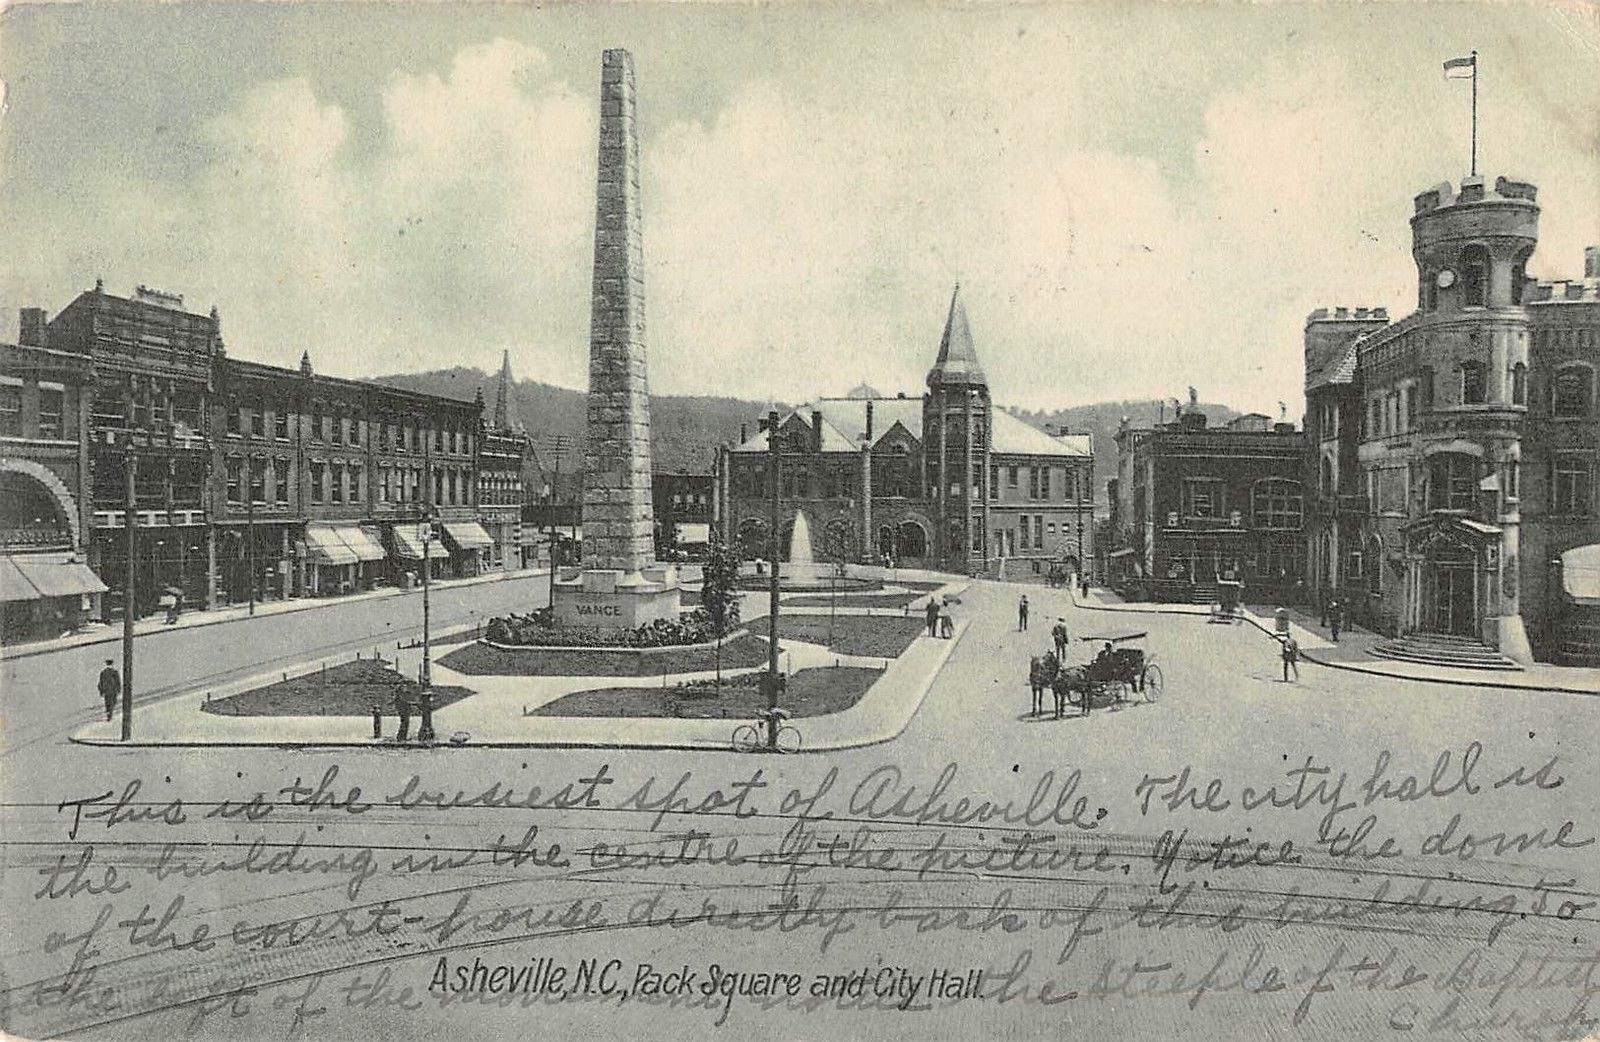 VANCE
This is the busiest spot of Asheville. The city hall is
the building in the centre of the picture. Notice the dome
of the court-house directly back of this building. To
the left of the monument notice the steeple of the Baptist
Church
Asheville, N.C., Pack Square and City Hall.